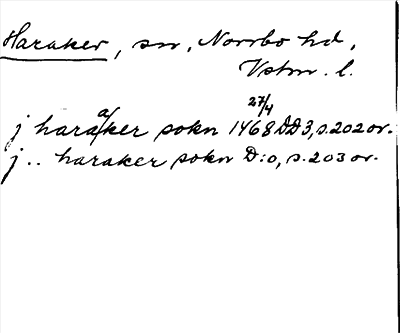 Haraker, sn, Norrbo hd,
Vstm. l.
27/4
j haraker sokn 1468 DD3, s. 202 or.
j .. haraker sokn D:o, s. 203 or.